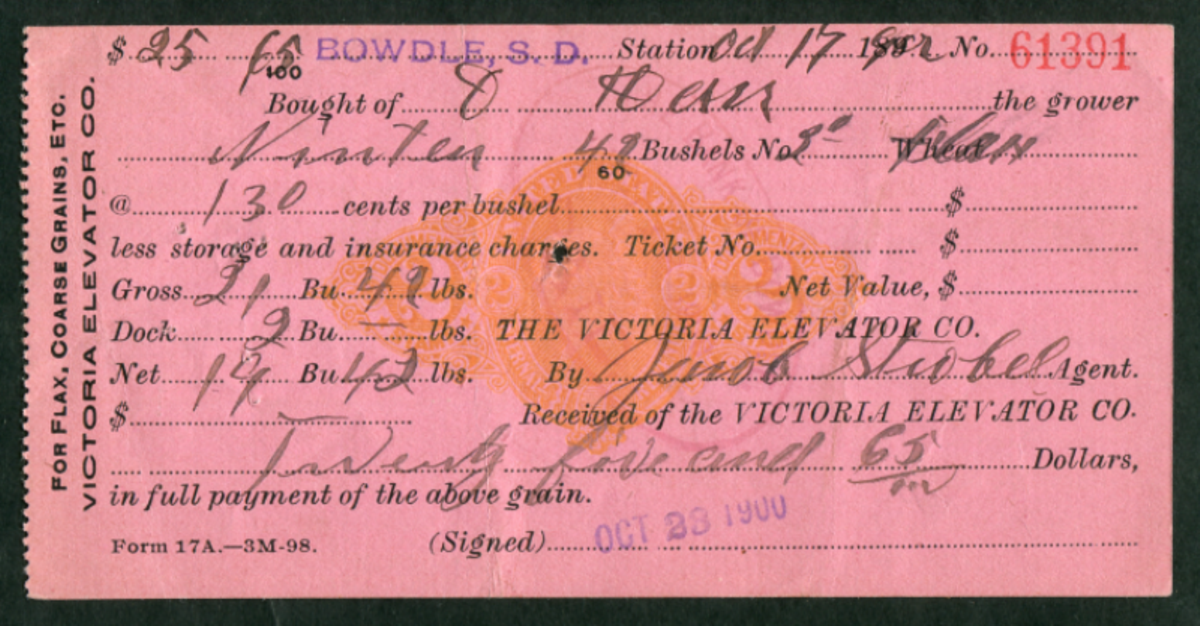 $ 25 65/100 BOWDLE, S. D. Station Oct 17 189 No. 61391
Bought of D the grower
Ninten 42/60 Bushels No 3 Wheat Flax
@ 130 cents per bushel $
less storage and insurance charges. Ticket No. $
Gross 21 Bu. 42 lbs. Net Value, $
Dock 2 Bu. lbs. THE VICTORIA ELEVATOR CO.
Net 19 Bu 42 lbs. By Jacob Strobel Agent.
$ Received of the VICTORIA ELEVATOR CO.
Twenty five and 65/100 Dollars,
in full payment of the above grain.
OCT 23 1900
Form 17A.—3M-98. (Signed)
FOR FLAX, COARSE GRAINS, ETC.
VICTORIA ELEVATOR CO.